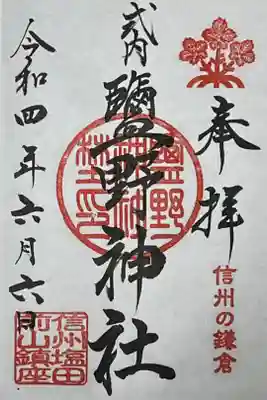 奉拝
信州の鎌倉
式内
鹽野神社
令和四年六月六日
信州塩田
前山鎮座